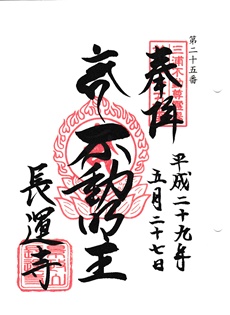 第二十五番
奉拝
平成二十九年
五月二十七日
不動明王
長運寺